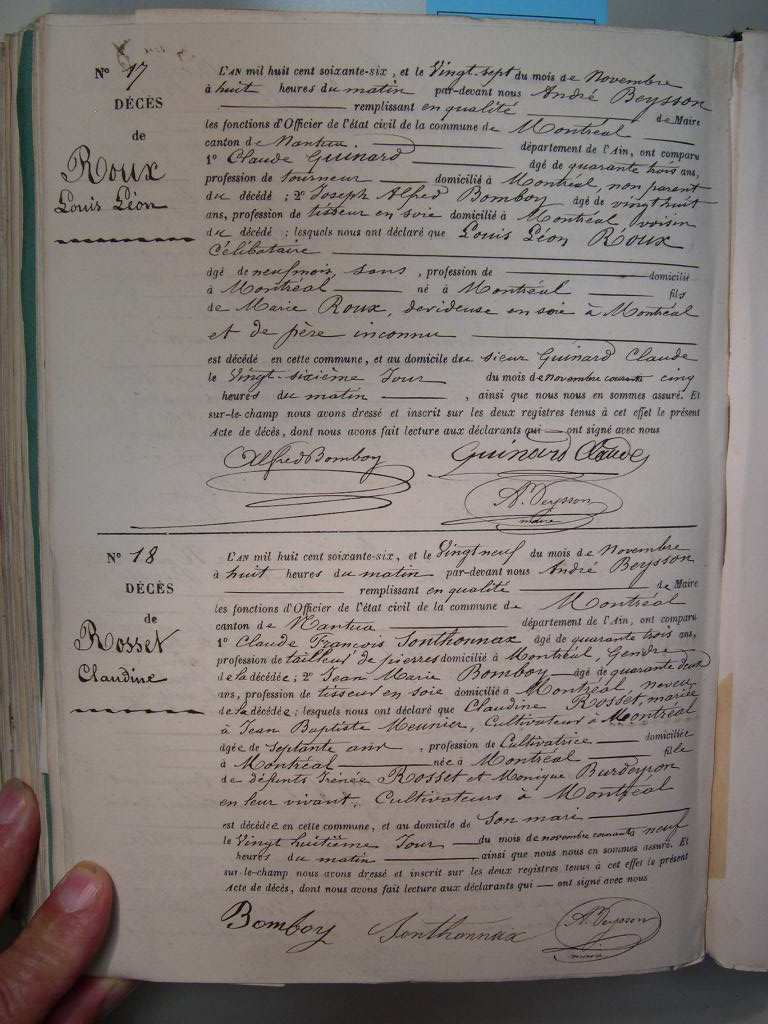 N° 17
DÉCÈS
de
Roux
Louis Léon
L'AN mil huit cent soixante-six, et le Vingt-sept du mois de Novembre
à huit heures du matin par-devant nous André Beysson
remplissant en qualité de Maire
les fonctions d'Officier de l'état civil de la commune de Montréal
canton de Nantua département de l'Ain, ont comparu
1° Claude Guinard âgé de quarante trois ans,
profession de tourneur domicilié à Montréal, non parent
du décédé ; 2° Joseph Alfred Bomboy âgé de vingt huit
ans, profession de tisseur en soie domicilié à Montréal voisin
du décédé ; lesquels nous ont déclaré que Louis Léon Roux
Célibataire
âgé de neuf mois, sans , profession de domicilié
à Montréal né à Montréal fils
de Marie Roux, devideuse en soie à Montréal
et de père inconnu
est décédé en cette commune, et au domicile du sieur Guinard Claude
le Vingt-sixième Jour du mois de novembre courant cinq
heures du matin , ainsi que nous nous en sommes assuré. Et
sur-le-champ nous avons dressé et inscrit sur les deux registres tenus à cet effet le présent
Acte de décès, dont nous avons fait lecture aux déclarants qui ont signé avec nous
Alfred Bomboy Guinard Claude
A. Beysson
maire
N° 18
DÉCÈS
de
Rosset
Claudine
L'AN mil huit cent soixante-six, et le Vingt neuf du mois de Novembre
à huit heures du matin par-devant nous André Beysson
remplissant en qualité de Maire
les fonctions d'Officier de l'état civil de la commune de Montréal
canton de Nantua département de l'Ain, ont comparu
1° Claude François Sonthonnax âgé de quarante trois ans,
profession de tailleur de pierres domicilié à Montréal, Gendre
de la décédée ; 2° Jean Marie Bomboy âgé de quarante deux
ans, profession de tisseur en soie domicilié à Montréal, neveu
de la décédée ; lesquels nous ont déclaré que Claudine Rosset, mariée
à Jean Baptiste Meunier, Cultivateur à Montréal
âgée de septante ans , profession de Cultivatrice domiciliée
à Montréal née à Montréal fille
de défunts Irénée Rosset et Monique Burdeyron
en leur vivant Cultivateurs à Montréal
est décédée en cette commune, et au domicile de son mari
le Vingt huitième Jour du mois de novembre courant neuf
heures du matin ainsi que nous nous en sommes assuré. Et
sur-le-champ nous avons dressé et inscrit sur les deux registres tenus à cet effet le présent
Acte de décès, dont nous avons fait lecture aux déclarants qui ont signé avec nous
Bomboy Sonthonnax A. Beysson
maire